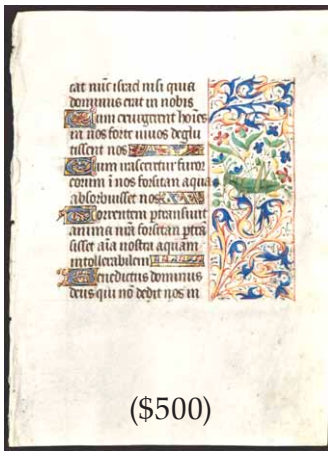 cat nūc israel nisi quia
dominus erat in nobis
Cum exurgerent hoīes
in nos forte vivos deglu
tissent nos
Cum irasceretur furor
eorum ī nos forsitan aqua
absorbuisset nos
Torrentem ptransivit
anima nrā forsitan ptrā
sisset aīa nostra aquam
intollerabilem
Benedictus dominus
deus qui nō dedit nos in
($500)